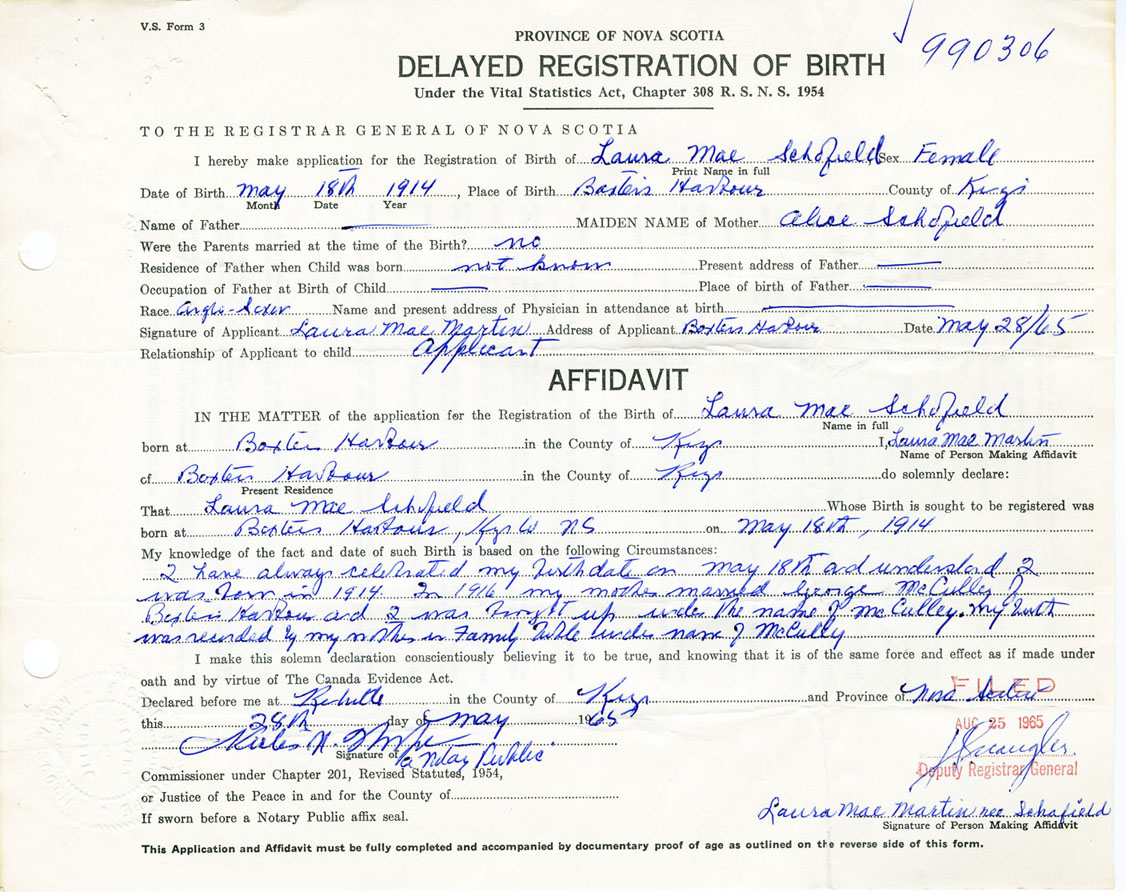 V.S. Form 3
990306
PROVINCE OF NOVA SCOTIA
DELAYED REGISTRATION OF BIRTH
Under the Vital Statistics Act, Chapter 308 R. S. N. S. 1954
TO THE REGISTRAR GENERAL OF NOVA SCOTIA
I hereby make application for the Registration of Birth of Laura Mae Schofield Sex Female
Print Name in full
Date of Birth May 18th 1914, Place of Birth Baxters Harbour County of Kings
Month Date Year
Name of Father MAIDEN NAME of Mother Alice Schofield
Were the Parents married at the time of the Birth? no
Residence of Father when Child was born not know Present address of Father
Occupation of Father at Birth of Child Place of birth of Father
Race Anglo-Saxon Name and present address of Physician in attendance at birth
Signature of Applicant Laura Mae Martin Address of Applicant Baxters Harbour Date May 28/65
Relationship of Applicant to child Applicant
AFFIDAVIT
IN THE MATTER of the application for the Registration of the Birth of Laura Mae Schofield
Name in full
born at Baxters Harbour in the County of Kings I, Laura Mae Martin
Name of Person Making Affidavit
of Baxters Harbour in the County of Kings do solemnly declare:
Present Residence
That Laura Mae Schofield Whose Birth is sought to be registered was
born at Baxters Harbour, Kings Co NS on May 18th, 1914
My knowledge of the fact and date of such Birth is based on the following Circumstances:
I have always celebrated my birthdate on May 18th and understand I
was born in 1914. In 1916 my mother married George McCulley of
Baxters Harbour and I was brought up under the name of McCulley. My birth
was recorded by my mother in Family Bible under name of McCully
I make this solemn declaration conscientiously believing it to be true, and knowing that it is of the same force and effect as if made under
oath and by virtue of The Canada Evidence Act.
Declared before me at in the County of Kings and Province of Nova Scotia
FILED
this 28th day of May 1965
AUG 25 1965
Signature of a Notary Public
Deputy Registrar General
Commissioner under Chapter 201, Revised Statutes, 1954,
or Justice of the Peace in and for the County of
Laura Mae Martin nee Schofield
If sworn before a Notary Public affix seal.
Signature of Person Making Affidavit
This Application and Affidavit must be fully completed and accompanied by documentary proof of age as outlined on the reverse side of this form.